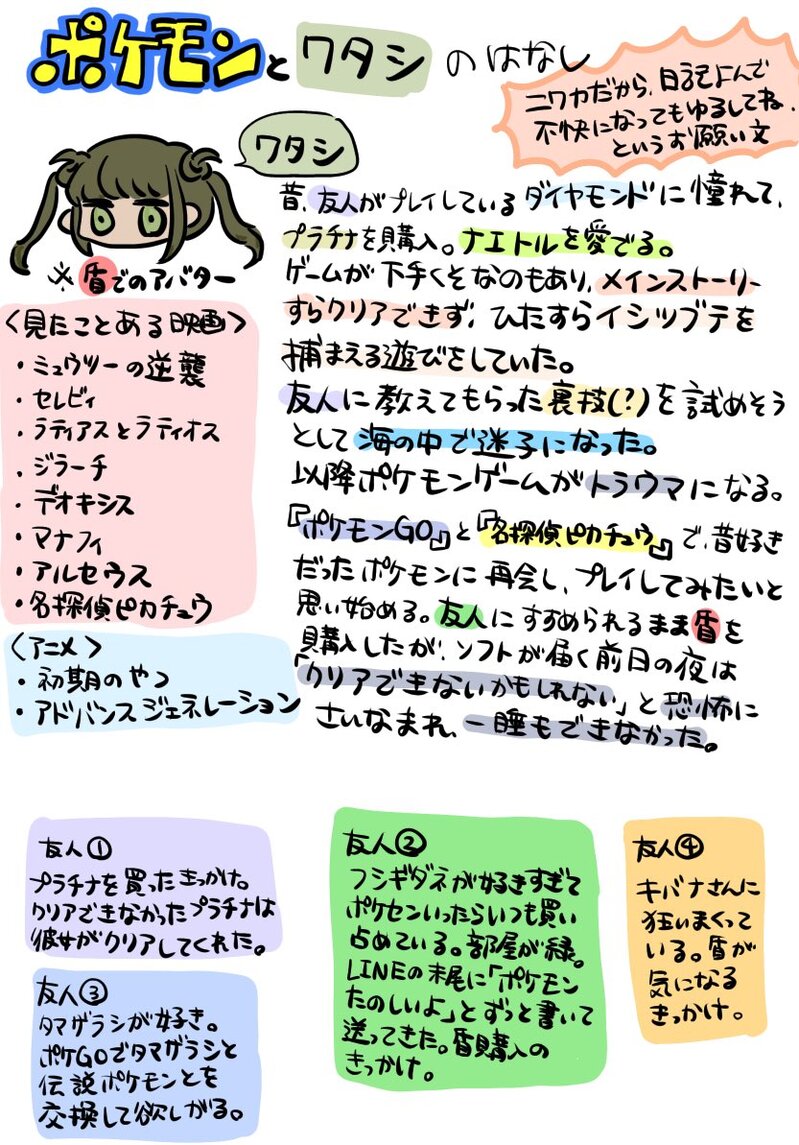 ポケモンとワタシのはなし
ニワカだから、日記よんで
不快になってもゆるしてね、
というお願い文
ワタシ
※盾でのアバター
昔、友人がプレイしているダイヤモンドに憧れて、
プラチナを購入。ナエトルを愛でる。
ゲームが下手くそなのもあり、メインストーリー
すらクリアできず、ひたすらイシツブテを
捕まえる遊びをしていた。
友人に教えてもらった裏技(?)を試めそう
として海の中で迷子になった。
以降ポケモンゲームがトラウマになる。
『ポケモンGO』と『名探偵ピカチュウ』で、昔好き
だったポケモンに再会し、プレイしてみたいと
思い始める。友人にすすめられるまま盾を
購入したが、ソフトが届く前日の夜は
「クリアできないかもしれない」と恐怖に
さいなまれ、一睡もできなかった。
<見たことある映画>
・ミュウツーの逆襲
・セレビィ
・ラティアスとラティオス
・ジラーチ
・デオキシス
・マナフィ
・アルセウス
・名探偵ピカチュウ
<アニメ>
・初期のやつ
・アドバンスジェネレーション
友人①
プラチナを買ったきっかけ。
クリアできなかったプラチナは
彼女がクリアしてくれた。
友人②
フシギダネが好きすぎて
ポケセンいったらいつも買い
占めている。部屋が緑。
LINEの末尾に「ポケモン
たのしいよ」とずっと書いて
送ってきた。盾購入の
きっかけ。
友人③
タマザラシが好き。
ポケGOでタマザラシと
伝説ポケモンとを
交換して欲しがる。
友人④
キバナさんに
狂いまくって
いる。盾が
気になる
きっかけ。